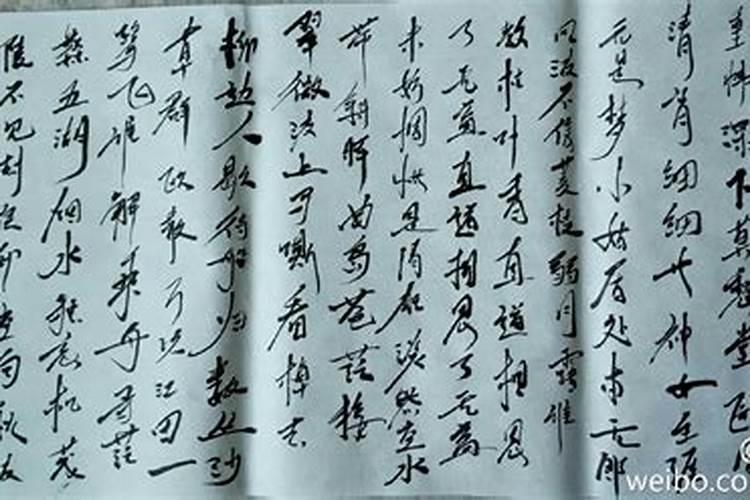 重帏深下莫愁堂卧
清宵细细长神女生涯
元是梦小姑居处本无郎
风波不信菱枝弱月露谁
教桂叶香直道相思
了无益直道相思了无益
未妨惆怅是清狂淡然空水
斜晖曲岛苍茫接
翠微波上马嘶看棹去
柳边人歇待船归数丛沙
草群鸥散万顷江田一
鹭飞谁解乘舟寻范
蠡五湖烟水独忘机茂
陵不见封侯印空向秋波
weibo.co